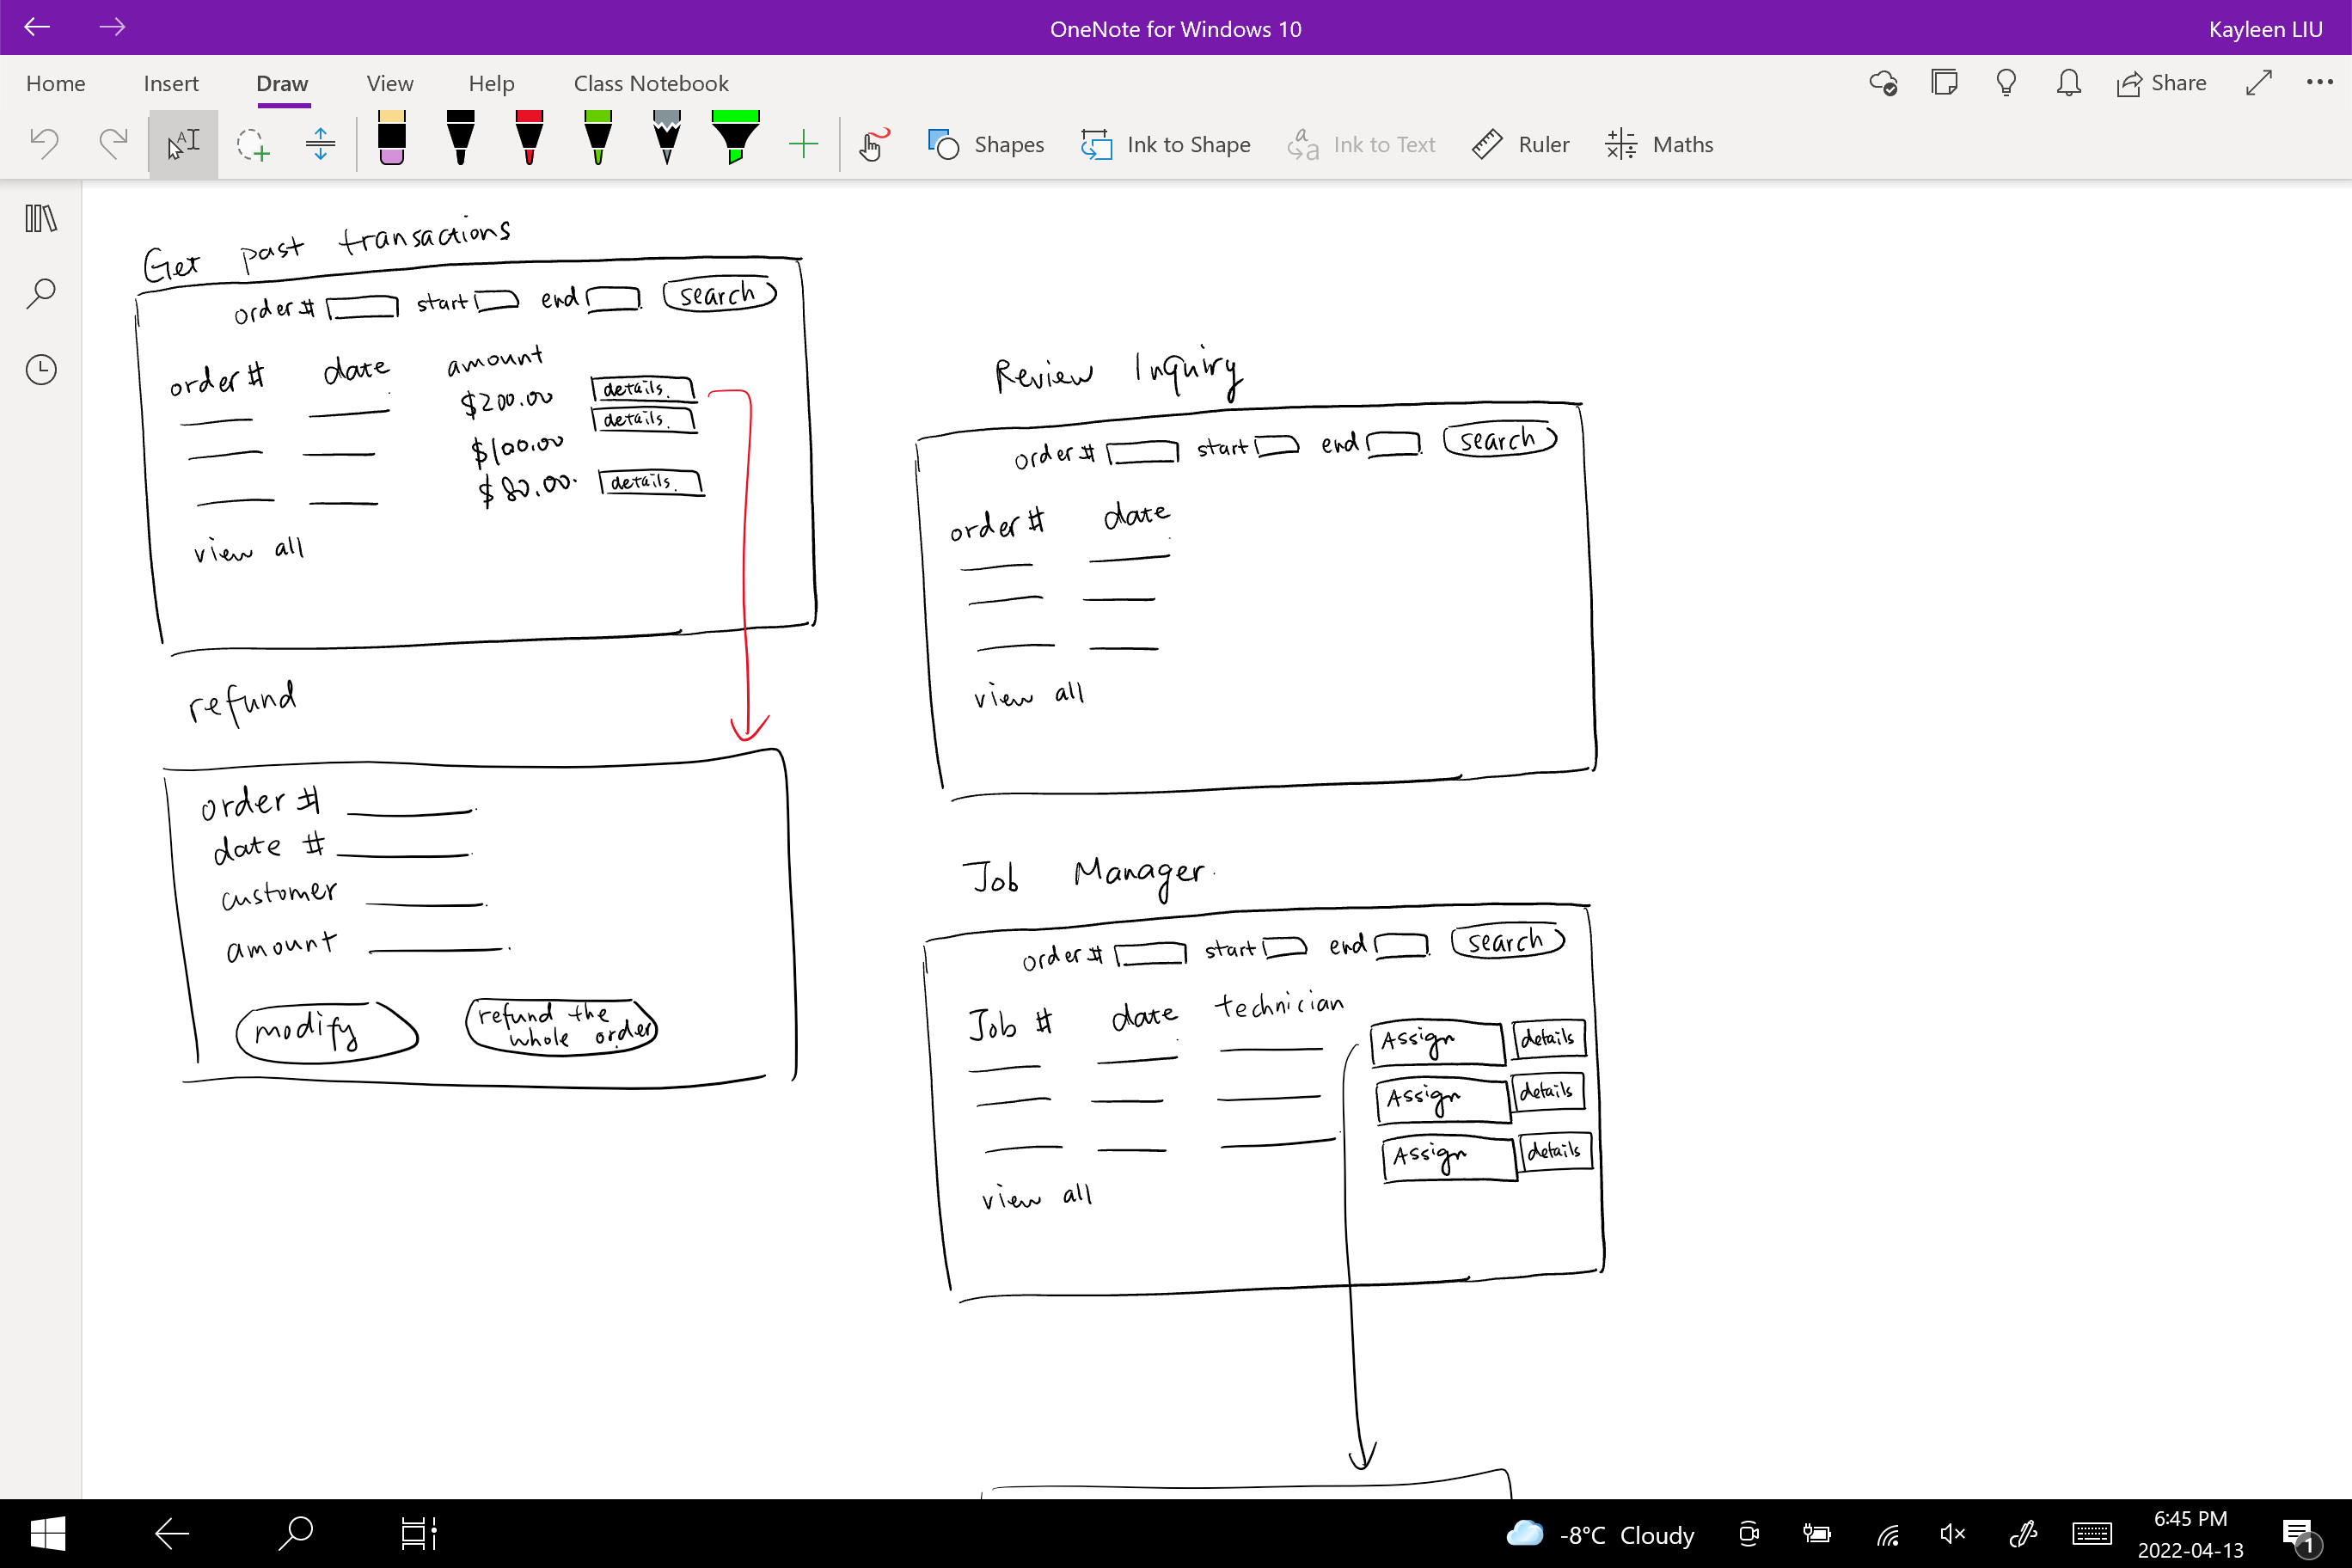 OneNote for Windows 10
Kayleen LIU
Home Insert Draw View Help Class Notebook
Share
Shapes Ink to Shape Ink to Text Ruler Maths
Get past transactions
order # start end search
order # date amount
$200.00 details
details
$100.00
$80.00 details
view all
refund
order #
date #
customer
amount
modify
refund the
whole order
Review Inquiry
order # start end search
order # date
view all
Job Manager
order # start end search
Job # date technician
Assign details
Assign details
Assign details
view all
-8°C Cloudy
6:45 PM
2022-04-13
1